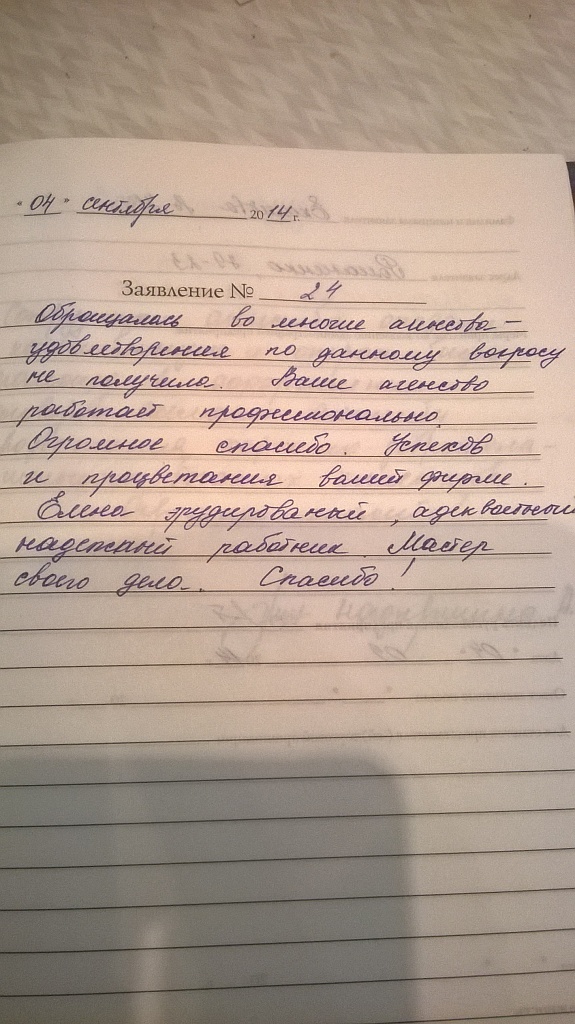 "04" сентября 2014 г.
Заявление № 24
Обращалась во многие агенства –
удовлетворения по данному вопросу
не получила. Ваше агенство
работает профессионально.
Огромное спасибо. Успехов
и процветания вашей фирме.
Елена эрудированый, адекватный
надежный работник. Мастер
своего дела. Спасибо!